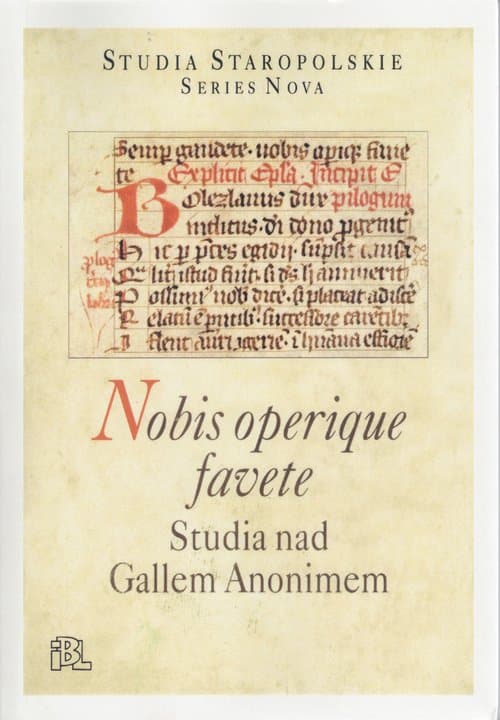 STUDIA STAROPOLSKIE
SERIES NOVA
Semp gaudete. nobis opiq; faue
te Explicit Epla. Incipit E
Bolezlauus dux pilogum
inclitus. di dono pgenit
Hic p pces egidii. supsit causā
istud fuit. si ds h annuerit
Possum nob dice. si placeat adisce
Relatū e successore carentib;
Flent
Nobis operique
favete
Studia nad
Gallem Anonimem
IBL